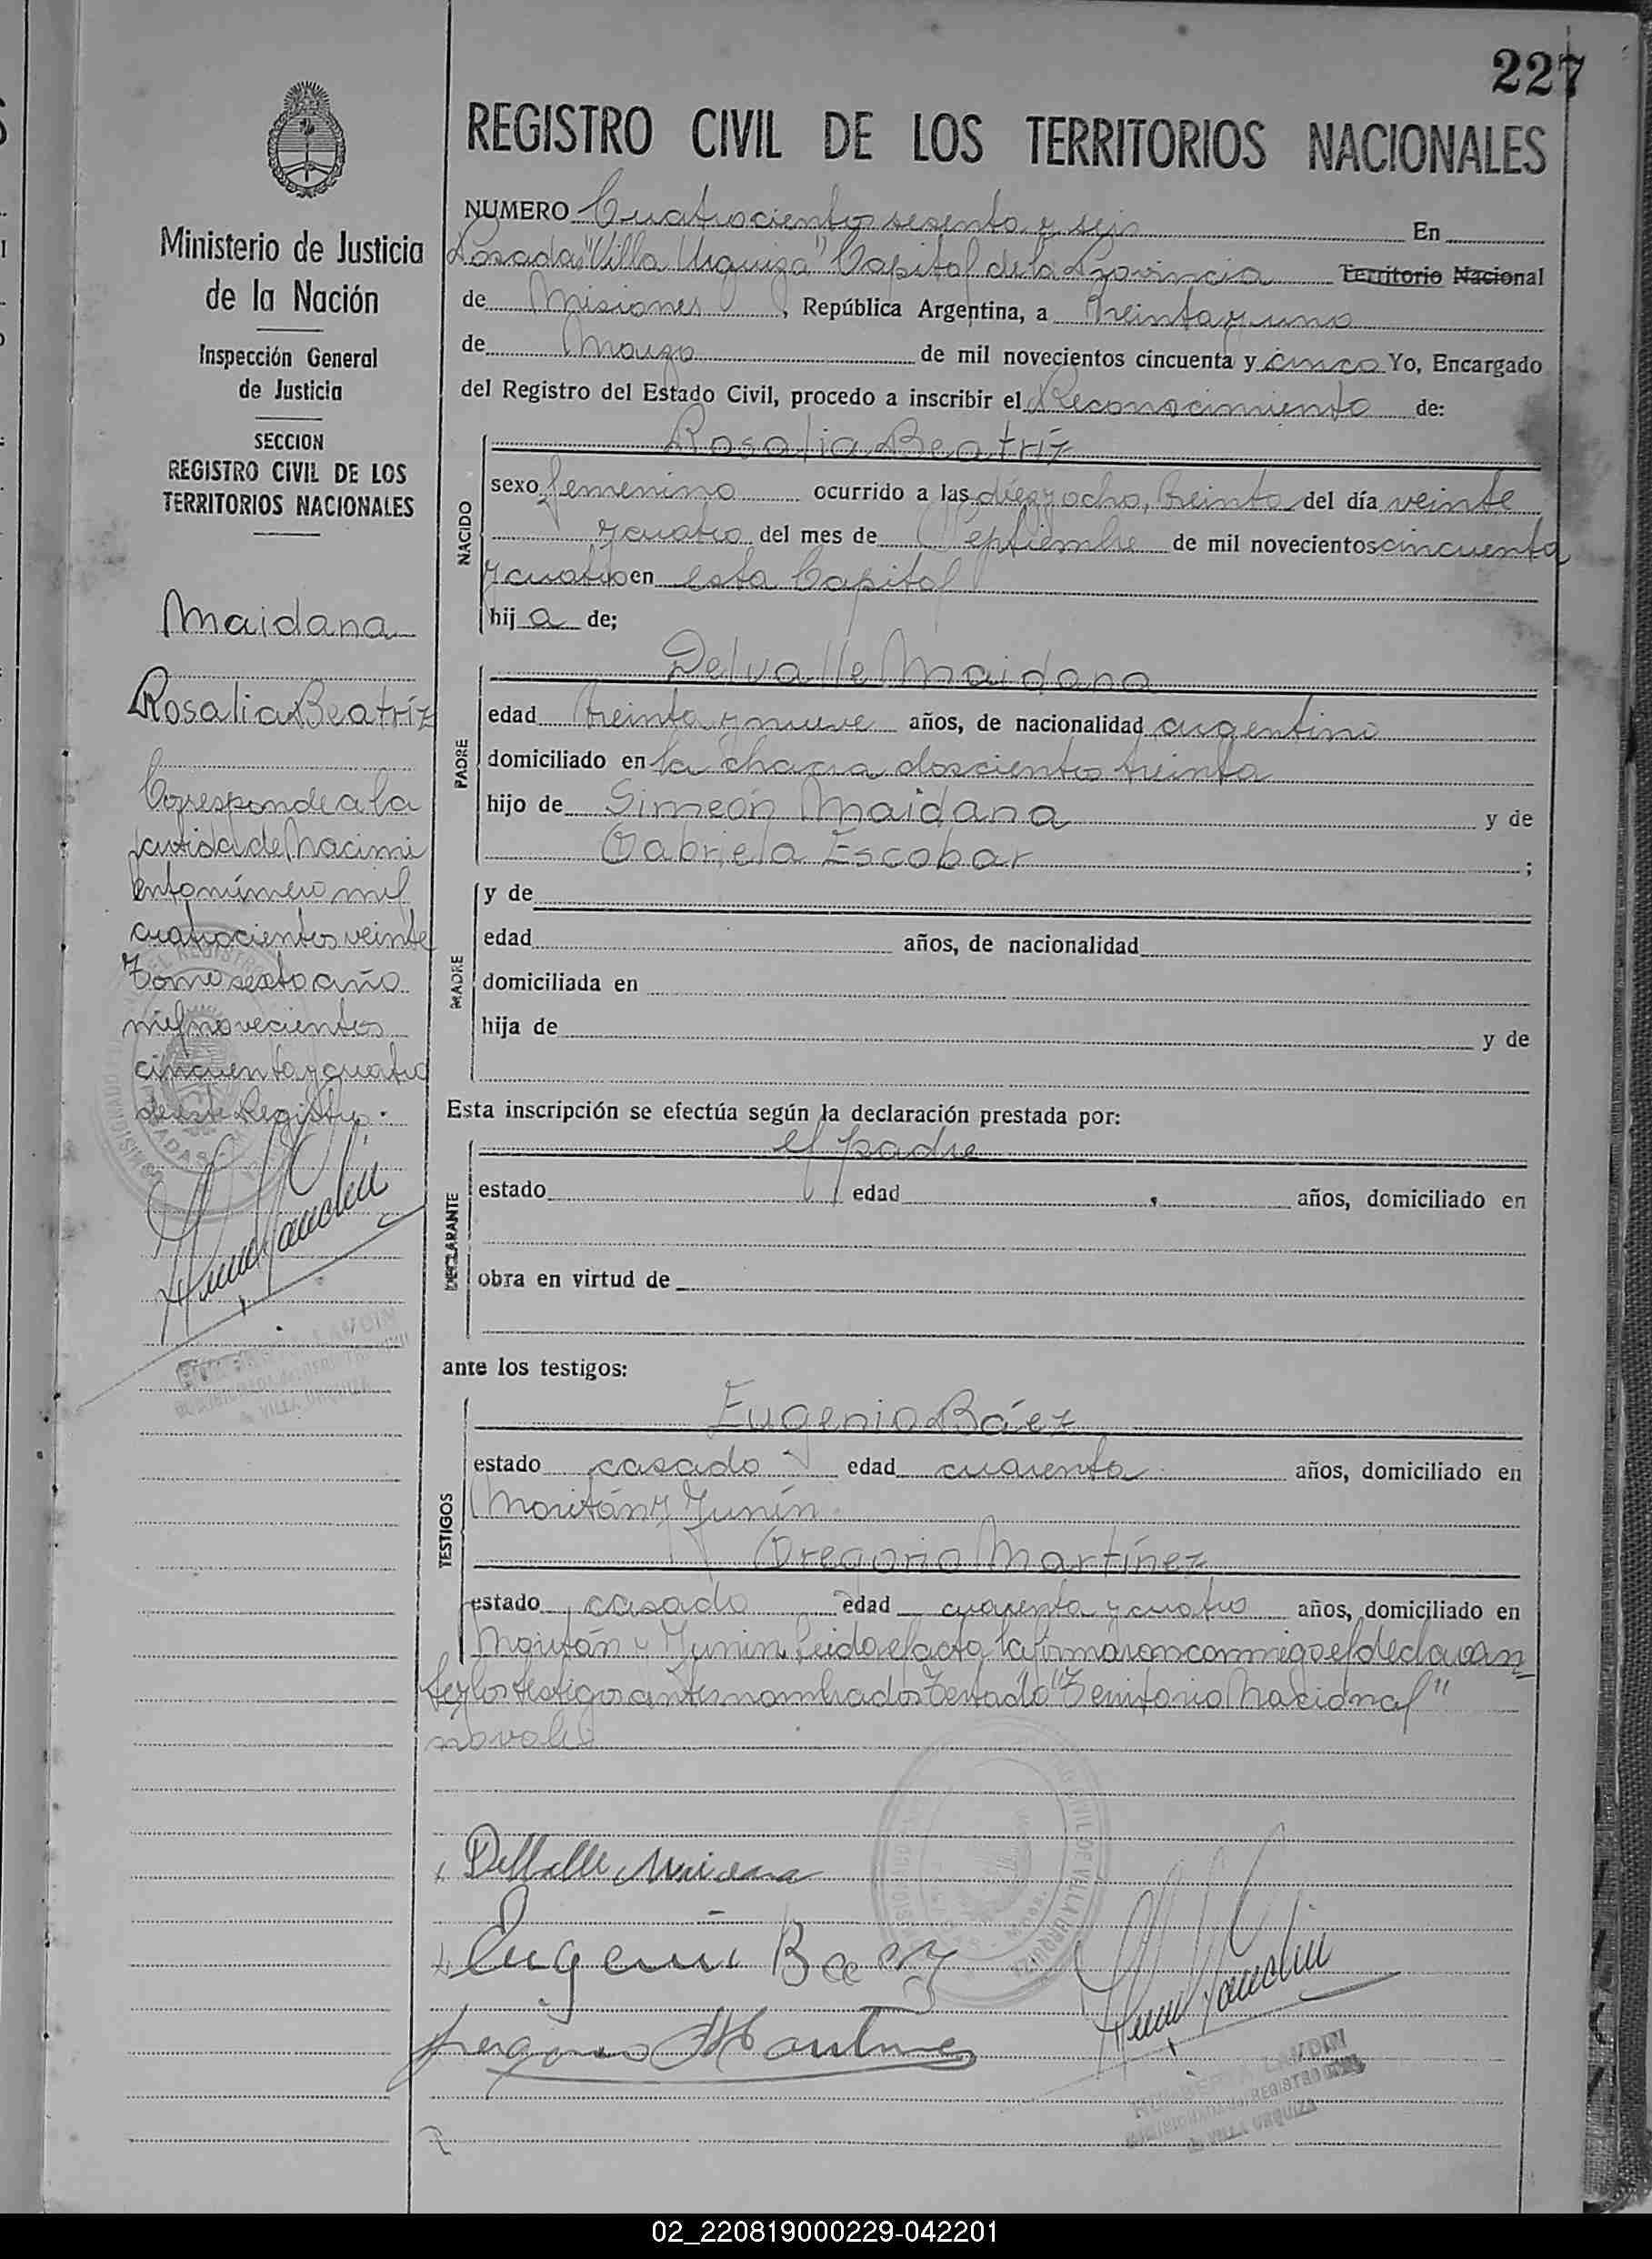 227
REGISTRO CIVIL DE LOS TERRITORIOS NACIONALES
Ministerio de Justicia
de la Nación
Inspección General
de Justicia
SECCION
REGISTRO CIVIL DE LOS
TERRITORIOS NACIONALES
Maidana
Rosalia Beatríz
Corresponde a la
partida de Nacimi
ento número mil
cuatrocientos veinte
Tomo sexto año
mil novecientos
cincuenta y cuatro
de este Registro.
NUMERO Cuatrocientos sesenta y seis En
Posadas "Villa Urquiza" Capital de la Provincia Territorio Nacional
de Misiones, República Argentina, a treinta y uno
de Marzo de mil novecientos cincuenta y cinco Yo, Encargado
del Registro del Estado Civil, procedo a inscribir el Reconocimiento de:
NACIDO
Rosalia Beatríz
sexo femenino ocurrido a las diez y ocho, treinta del día veinte
y cuatro del mes de Septiembre de mil novecientos cincuenta
y cuatro en esta Capital
hij a de;
PADRE
Delvalle Maidana
edad treinta y nueve años, de nacionalidad argentino
domiciliado en la chacra doscientos treinta
hijo de Simeón Maidana y de
Gabriela Escobar ;
MADRE
y de
edad años, de nacionalidad
domiciliada en
hija de y de
Esta inscripción se efectúa según la declaración prestada por:
DECLARANTE
el padre
estado edad años, domiciliado en
obra en virtud de
ante los testigos:
TESTIGOS
Eugenio Báez
estado casado edad cuarenta años, domiciliado en
Moritán y Junín.
Gregorio Martínez
estado casado edad cuarenta y cuatro años, domiciliado en
Moritán y Junin. Leida el acta, la firmaron conmigo el declaran
te y los testigos antes nombrados Testado "Territorio Nacional"
no vale
Delvalle Maidana
Eugenio Baez
Gregorio Martinez
REGISTRO CIVIL
VILLA URQUIZA
02_220819000229-042201